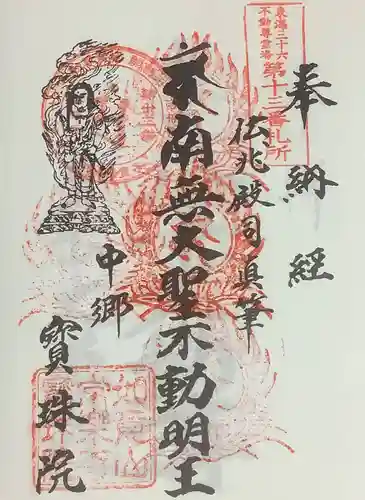 東海三十六
不動尊霊場
第十三番札所
奉納経
弘兆殿司真筆
南無大聖不動明王
中郷
寳珠院